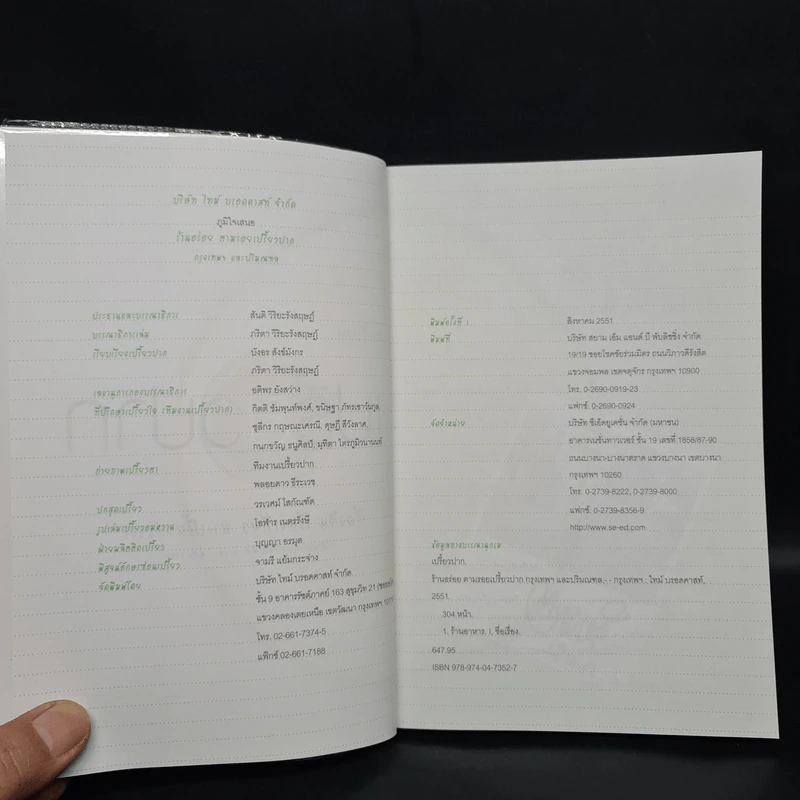 บริษัท ไทม์ บรอดคาสท์ จำกัด
ภูมิใจเสนอ
ร้านอร่อย ตามรอยเปรี้ยวปาก
กรุงเทพฯ และปริมณฑล
ประธานและบรรณาธิการ สันติ วิริยะรังสฤษฎ์
บรรณาธิการเล่ม ภริตา วิริยะรังสฤษฎ์
เรียบเรียงเปรี้ยวปาก บังอร สังข์มังกร
ภริตา วิริยะรังสฤษฎ์
เลขานุการกองบรรณาธิการ อติพร ยังสว่าง
ที่ปรึกษาเปรี้ยวใจ (ทีมงานเปรี้ยวปาก) กิตติ ชัมพุนท์พงศ์, ขนิษฐา ภัทรเชาว์นกุล,
ชุลีกร กฤษณะเศรณี, ดุษฎี สีวังลาศ,
กนกขวัญ ธนูศิลป์, มุทิตา ไตรภูมิวนานนท์
ถ่ายภาพเปรี้ยวตา ทีมงานเปรี้ยวปาก
พลอยดาว ธีระเวช
ปกสุดเปรี้ยว วรเวศม์ โสภัณฑัด
รูปเล่มเปรี้ยวอมหวาน โอฬาร เนตรรังษี
บุญญา อรมุต
พิสูจน์อักษรซ่อนเปรี้ยว จามรี แย้มกระจ่าง
จัดพิมพ์โดย บริษัท ไทม์ บรอดคาสท์ จำกัด
ชั้น 9 อาคารรัชต์ภาคย์ 163 สุขุมวิท 21
แขวงคลองเตยเหนือ เขตวัฒนา กรุงเทพฯ
โทร. 02-661-7374-5
แฟ็กซ์ 02-661-7188
พิมพ์ครั้งที่ 1 สิงหาคม 2551
พิมพ์ที่ บริษัท สยาม เอ็ม แอนด์ บี พับลิชชิ่ง จำกัด
19/19 ซอยโชคชัยร่วมมิตร ถนนวิภาวดีรังสิต
แขวงจอมพล เขตจตุจักร กรุงเทพฯ 10900
โทร. 0-2690-0919-23
แฟกซ์. 0-2690-0924
จัดจำหน่าย บริษัท ซีเอ็ดยูเคชั่น จำกัด (มหาชน)
อาคารเนชั่นทาวเวอร์ ชั้น 19 เลขที่ 1858/87-90
ถนนบางนา-บางนาตราด แขวงบางนา เขตบางนา
กรุงเทพฯ 10260
โทร. 0-2739-8222, 0-2739-8000
แฟกซ์. 0-2739-8356-9
http://www.se-ed.com
ข้อมูลทางบรรณานุกรม
เปรี้ยวปาก.
ร้านอร่อย ตามรอยเปรี้ยวปาก กรุงเทพฯ และปริมณฑล.- - กรุงเทพฯ : ไทม์ บรอดคาสท์,
2551.
304.หน้า.
1. ร้านอาหาร. I. ชื่อเรื่อง.
647.95
ISBN 978-974-04-7352-7